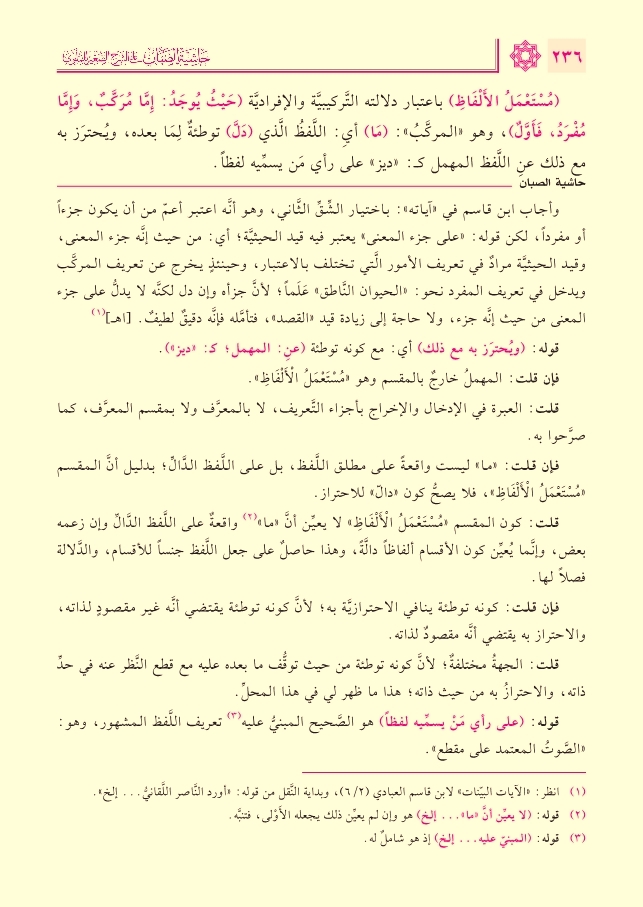 ٢٣٦
حاشية الصبان على الشرح الصغير للملوي
(مُسْتَعْمَلُ الأَلْفَاظِ) باعتبار دلالته التَّركيبيَّة والإفراديَّة (حَيْثُ يُوجَدُ: إِمَّا مُرَكَّبٌ، وَإِمَّا
مُفْرَدٌ، فَأَوَّلٌ)، وهو «المركَّبُ»: (مَا) أي: اللَّفظُ الَّذي (دَلَّ) توطئةٌ لِمَا بعده، ويُحترَز به
مع ذلك عنِ اللَّفظ المهمل كـ: «ديز» على رأي مَن يسمِّيه لفظاً.
حاشية الصبان
وأجاب ابن قاسم في «آياته»: باختيار الشِّقِّ الثَّاني، وهو أنَّه اعتبر أعمّ من أن يكون جزءاً
أو مفرداً، لكن قوله: «على جزء المعنى» يعتبر فيه قيد الحيثيَّة؛ أي: من حيث إنَّه جزء المعنى،
وقيد الحيثيَّة مرادٌ في تعريف الأمور الَّتي تختلف بالاعتبار، وحينئذٍ يخرج عن تعريف المركَّب
ويدخل في تعريف المفرد نحو: «الحيوان النَّاطق» عَلَماً؛ لأنَّ جزأه وإن دل لكنَّه لا يدلُّ على جزء
المعنى من حيث إنَّه جزء، ولا حاجة إلى زيادة قيد «القصد»، فتأمَّله فإنَّه دقيقٌ لطيفٌ. [اهـ](١)
قوله: (ويُحترَز به مع ذلك) أي: مع كونه توطئة (عنِ: المهمل؛ كـ: «ديز»).
فإن قلت: المهملُ خارجٌ بالمقسم وهو «مُسْتَعْمَلُ الْأَلْفَاظِ».
قلت: العبرة في الإدخال والإخراج بأجزاء التَّعريف، لا بالمعرَّف ولا بمقسم المعرَّف، كما
صرَّحوا به.
فإن قلت: «ما» ليست واقعةً على مطلق اللَّفظ، بل على اللَّفظ الدَّالِّ؛ بدليل أنَّ المقسم
«مُسْتَعْمَلُ الْأَلْفَاظِ»، فلا يصحُّ كون «دالّ» للاحتراز.
قلت: كون المقسم «مُسْتَعْمَلُ الْأَلْفَاظِ» لا يعيِّن أنَّ «ما»(٢) واقعةٌ على اللَّفظ الدَّالِّ وإن زعمه
بعض، وإنَّما يُعيِّن كون الأقسام ألفاظاً دالَّةً، وهذا حاصلٌ على جعل اللَّفظ جنساً للأقسام، والدَّلالة
فصلاً لها.
فإن قلت: كونه توطئة ينافي الاحترازيَّة به؛ لأنَّ كونه توطئة يقتضي أنَّه غير مقصودٍ لذاته،
والاحتراز به يقتضي أنَّه مقصودٌ لذاته.
قلت: الجهةُ مختلفةٌ؛ لأنَّ كونه توطئة من حيث توقُّف ما بعده عليه مع قطع النَّظر عنه في حدِّ
ذاته، والاحترازُ به من حيث ذاته؛ هذا ما ظهر لي في هذا المحلِّ.
قوله: (على رأي مَنْ يسمِّيه لفظاً) هو الصَّحيح المبنيُّ عليه(٣) تعريف اللَّفظ المشهور، وهو:
«الصَّوتُ المعتمد على مقطع».
(١) انظر: «الآيات البيّنات» لابن قاسم العبادي (٦/٢)، وبداية النَّقل من قوله: «أورد النَّاصر اللَّقانيُّ... إلخ».
(٢) قوله: (لا يعيِّن أنَّ «ما»... إلخ) هو وإن لم يعيِّن ذلك يجعله الأَوْلى، فتنبَّه.
(٣) قوله: (المبنيّ عليه... إلخ) إذ هو شاملٌ له.